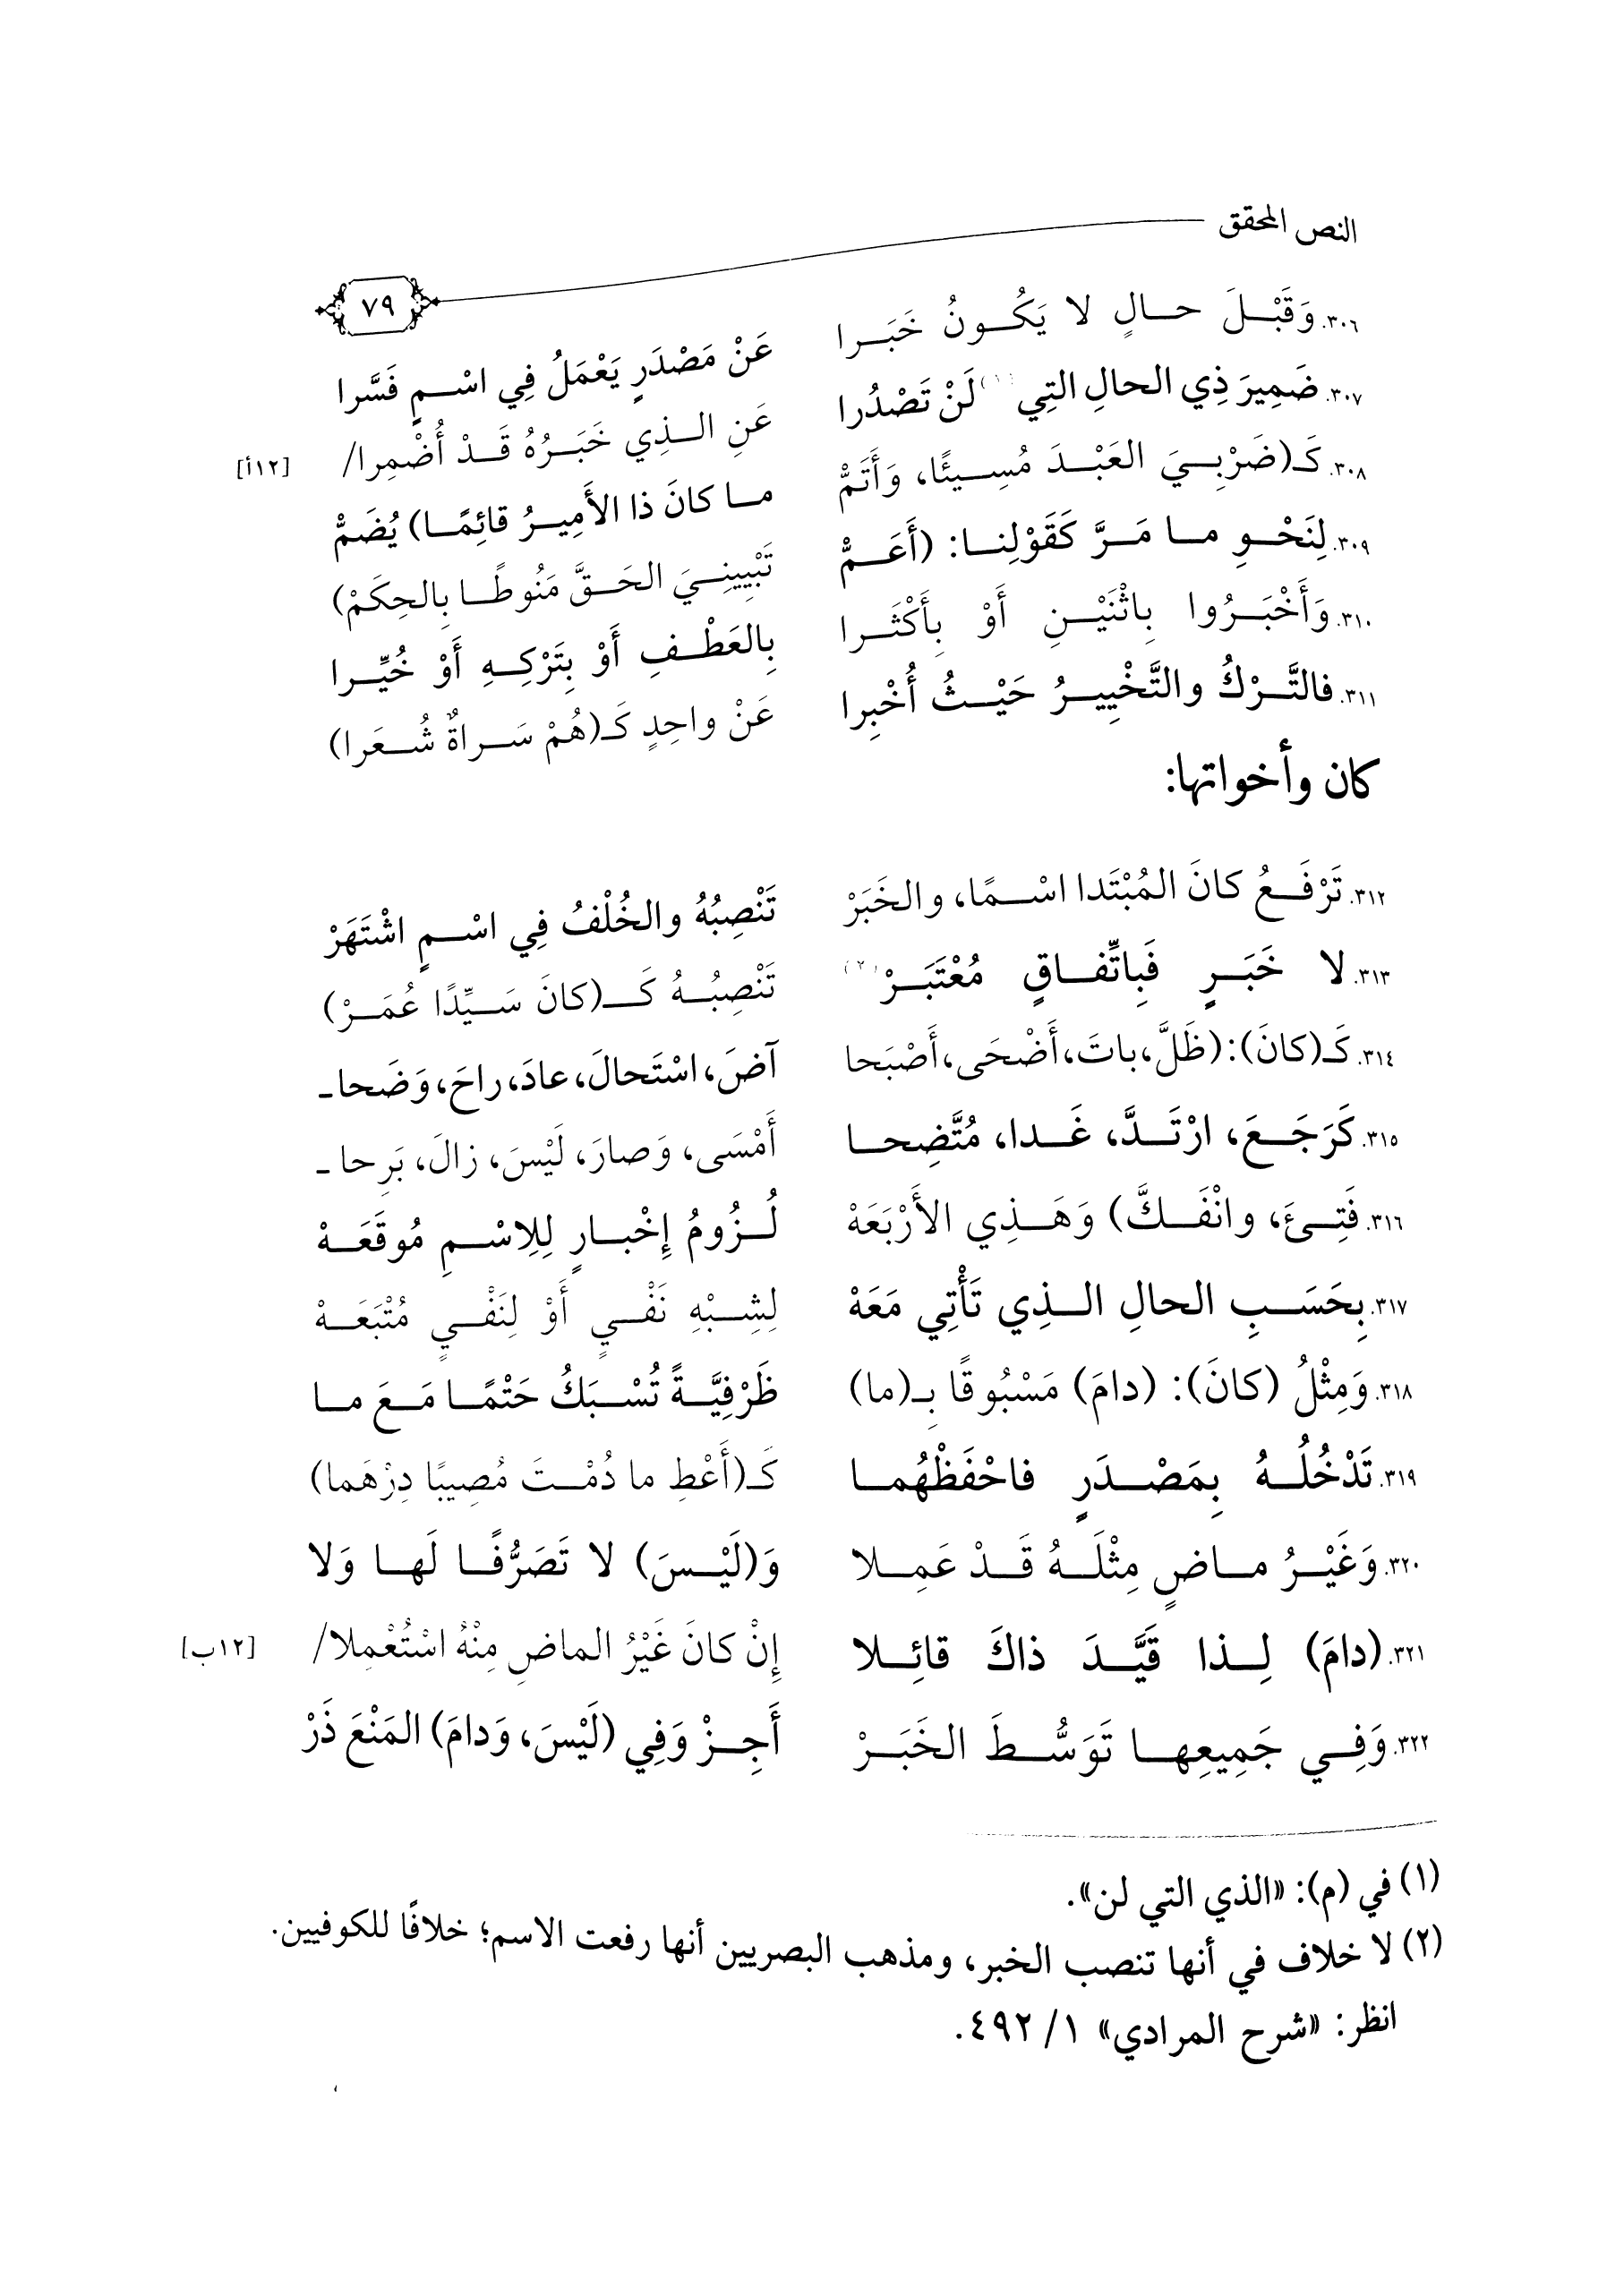 النص المحقق
٧٩
٣٠٦. وَقَبْلَ حالٍ لا يَكُونُ خَبَرا عَنْ مَصْدَرٍ يَعْمَلُ فِي اسْمٍ فَسَّرا
٣٠٧. ضَمِيرَ ذِي الحالِ التِي (١) لَنْ تَصْدُرا عَنِ الذِي خَبَرُهُ قَدْ أُضْمِرا/ [١٢أ]
٣٠٨. كَـ(ضَرْبِيَ العَبْدَ مُسِيئًا، وَأَتَمّْ ما كانَ ذا الأَمِيرُ قائِمًا) يُضَمّْ
٣٠٩. لِنَحْوِ ما مَرَّ كَقَوْلِنا: (أَعَمّْ تَبْيِينِيَ الحَقَّ مَنُوطًا بِالحِكَمْ)
٣١٠. وَأَخْبَرُوا بِاثْنَيْنِ أَوْ بِأَكْثَرا بِالعَطْفِ أَوْ بِتَرْكِهِ أَوْ خُيِّرا
٣١١. فالتَّرْكُ والتَّخْيِيرُ حَيْثُ أُخْبِرا عَنْ واحِدٍ كَـ(هُمْ سَراةٌ شُعَرا)
كان وأخواتها:
٣١٢. تَرْفَعُ كانَ المُبْتَدا اسْمًا، والخَبَرْ تَنْصِبُهُ والخُلْفُ فِي اسْمٍ اشْتَهَرْ
٣١٣. لا خَبَرٍ فَبِاتِّفاقٍ مُعْتَبَرْ (٢) تَنْصِبُهُ كَـ(كانَ سَيِّدًا عُمَرْ)
٣١٤. كَـ(كانَ): (ظَلَّ، باتَ، أَضْحَى، أَصْبَحا آضَ، اسْتَحالَ، عادَ، راحَ، وَضَحا-
٣١٥. كَرَجَعَ، ارْتَدَّ، غَدا، مُتَّضِحا أَمْسَى، وَصارَ، لَيْسَ، زالَ، بَرِحا-
٣١٦. فَتِئَ، وانْفَكَّ) وَهَذِي الأَرْبَعَهْ لُزُومُ إِخْبارٍ لِلِاسْمِ مُوقَعَهْ
٣١٧. بِحَسَبِ الحالِ الذِي تَأْتِي مَعَهْ لِشِبْهِ نَفْيٍ أَوْ لِنَفْيٍ مُتْبَعَهْ
٣١٨. وَمِثْلُ (كانَ): (دامَ) مَسْبُوقًا بِـ(ما) ظَرْفِيَّةً تُسْبَكُ حَتْمًا مَعَ ما
٣١٩. تَدْخُلُهُ بِمَصْدَرٍ فاحْفَظْهُما كَـ(أَعْطِ ما دُمْتَ مُصِيبًا دِرْهَما)
٣٢٠. وَغَيْرُ ماضٍ مِثْلَهُ قَدْ عَمِلا وَ(لَيْسَ) لا تَصَرُّفًا لَها وَلا
٣٢١. (دامَ) لِذا قَيَّدَ ذاكَ قائِلا إِنْ كانَ غَيْرُ الماضِ مِنْهُ اسْتُعْمِلا/ [١٢ب]
٣٢٢. وَفِي جَمِيعِها تَوَسُّطَ الخَبَرْ أَجِزْ وَفِي (لَيْسَ، وَدامَ) المَنْعَ ذَرْ
(١) في (م): «الذي التي لن».
(٢) لا خلاف في أنها تنصب الخبر، ومذهب البصريين أنها رفعت الاسم؛ خلافًا للكوفيين.
انظر: «شرح المرادي» ١/ ٤٩٢.